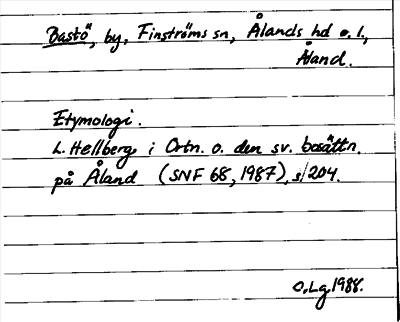 Bastö, by, Finströms sn, Ålands hd o. l.,
Åland.
Etymologi.
L. Hellberg i Ortn. o. den sv. bosättn.
på Åland (SNF 68, 1987), s/204.
O.Lg.1988.